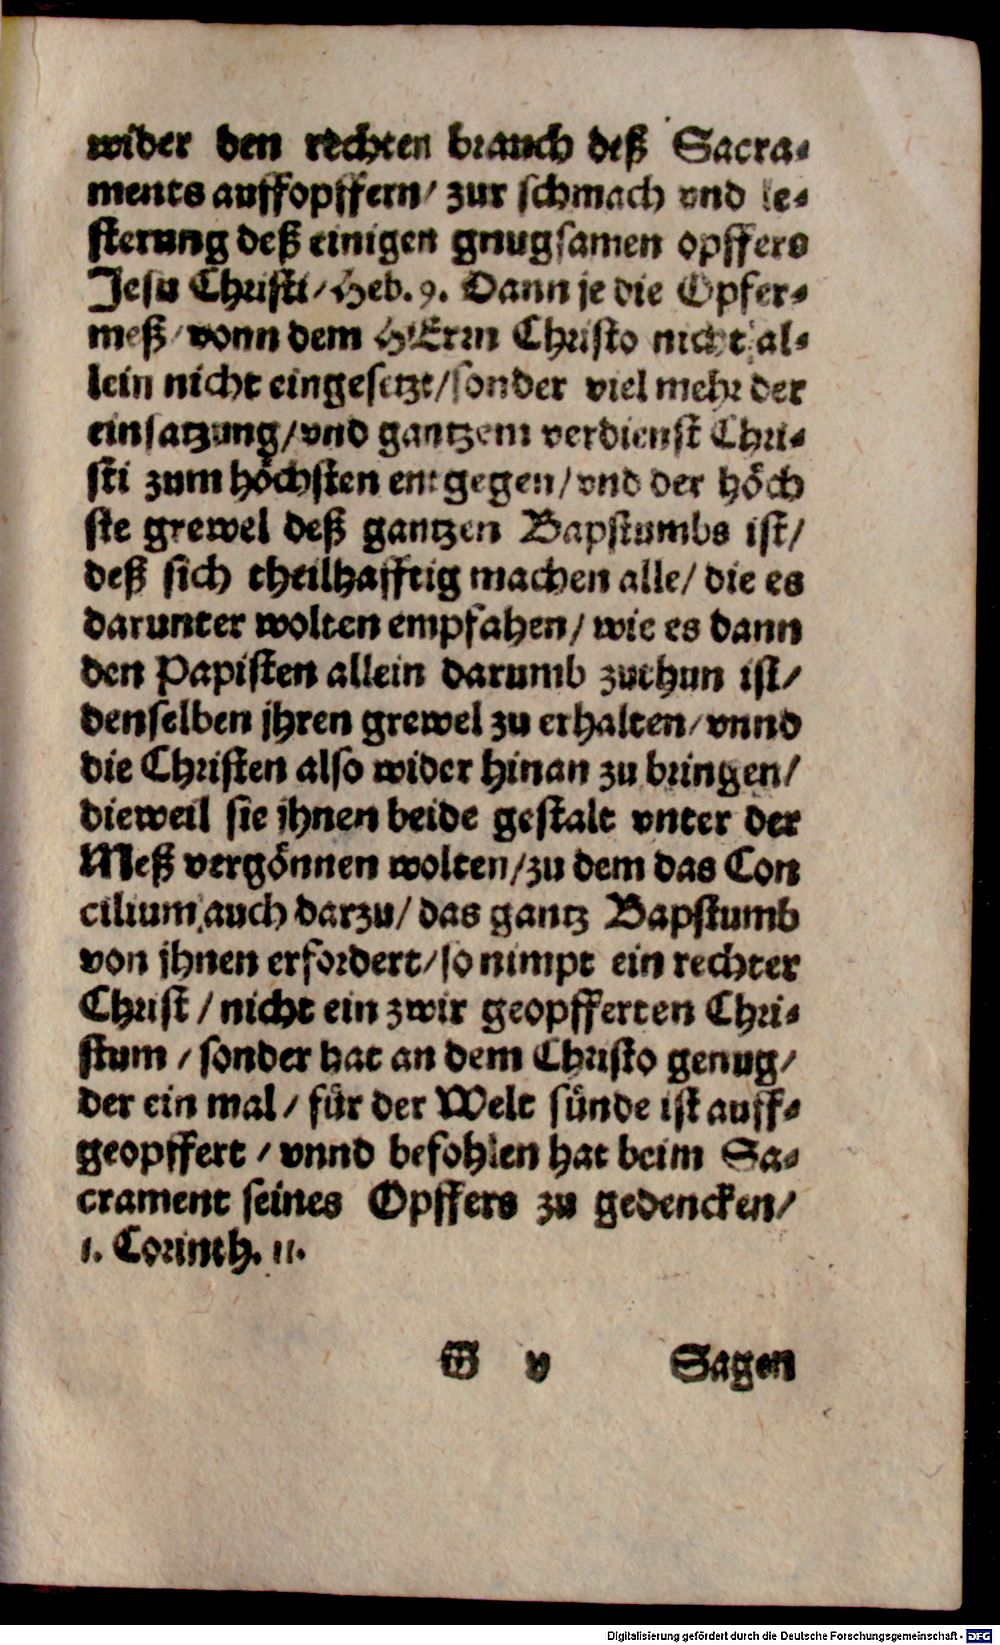 wider den rechten brauch deß Sacra-
ments auffopffern/ zur schmach vnd le-
sterung deß einigen gnugsamen opffers
Jesu Christi/ Heb. 9. Dann je die Opfer-
meß/ vonn dem HErrn Christo nicht al-
lein nicht eingesetzt/ sonder viel mehr der
einsatzung/ vnd gantzem verdienst Chri-
sti zum höchsten entgegen/ vnd der höch
ste grewel deß gantzen Bapstumbs ist/
deß sich theilhafftig machen alle/ die es
darunter wolten empfahen/ wie es dann
den Papisten allein darumb zuthun ist/
denselben jhren grewel zu erhalten/ vnnd
die Christen also wider hinan zu bringen/
dieweil sie jhnen beide gestalt vnter der
Meß vergönnen wolten/ zu dem das Con
cilium auch darzu/ das gantz Bapstumb
von jhnen erfordert/ so nimpt ein rechter
Christ/ nicht ein zwir geopfferten Chri-
stum/ sonder hat an dem Christo genug/
der ein mal/ für der Welt sünde ist auff-
geopffert/ vnnd befohlen hat beim Sa-
crament seines Opffers zu gedencken/
1. Corinth. 11.
G v Sagen
Digitalisierung gefördert durch die Deutsche Forschungsgemeinschaft - DFG